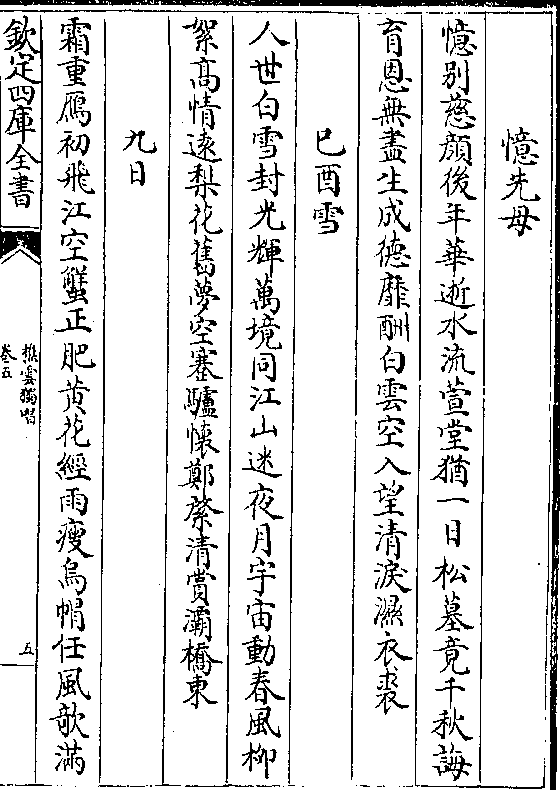 憶先母
憶別慈顔後年華逝水流萱堂猶一日松墓竟千秋誨
育恩無盡生成德靡酬白雲空入望清淚濕衣裘
已酉雪
人世白雪封光輝萬境同江山迷夜月宇宙動春風柳
絮高情逺梨花舊夢空塞驢懷鄭綮清賞灞橋東
九日
霜重鴈初飛江空蟹正肥黄花經雨瘦烏帽任風欹滿
欽定四庫全書
樵雲獨唱
卷五
五